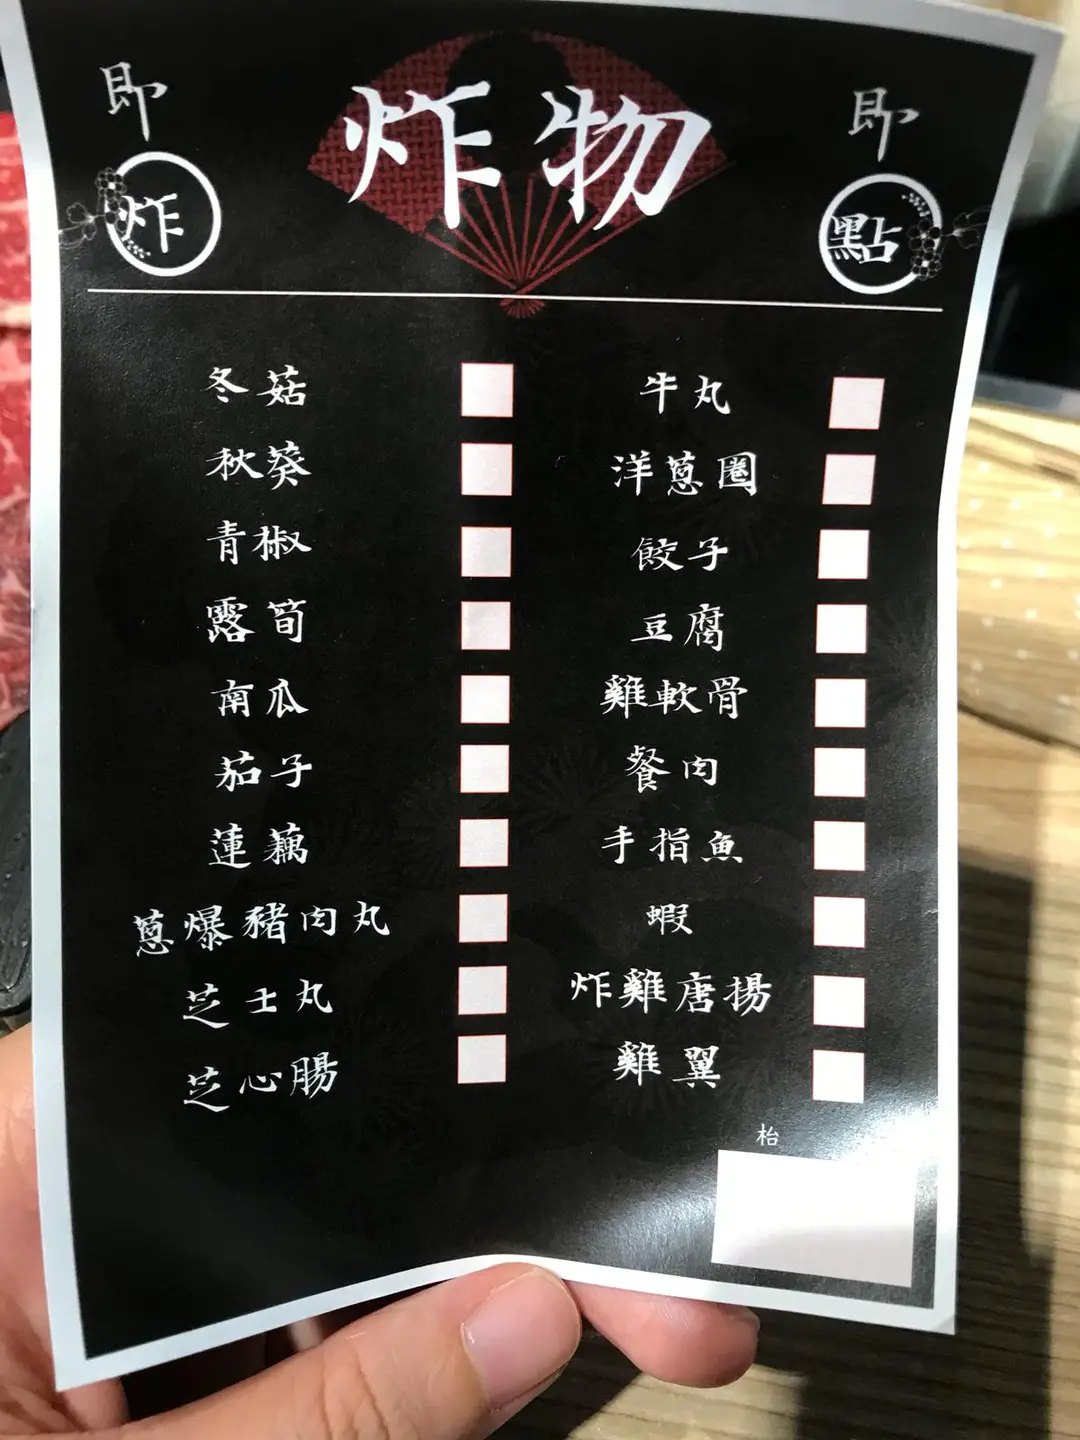 炸物
即炸
即點
冬菇
秋葵
青椒
露筍
南瓜
茄子
蓮藕
蔥爆豬肉丸
芝士丸
芝心腸
牛丸
洋蔥圈
餃子
豆腐
雞軟骨
餐肉
手指魚
蝦
炸雞唐揚
雞翼
枱